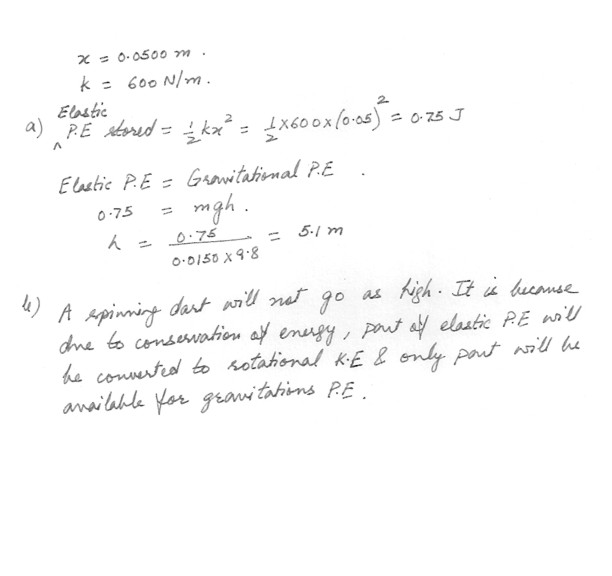 x = 0.0500 m.
k = 600 N/m.
a) Elastic P.E stored = 1/2 kx² = 1/2 x 600 x (0.05)² = 0.75 J
Elastic P.E = Gravitational P.E.
0.75 = mgh.
h = 0.75 / 0.0150 x 9.8 = 5.1 m
b) A spinning dart will not go as high. It is because
due to conservation of energy, part of elastic P.E will
be converted to rotational K.E & only part will be
available for gravitations P.E.